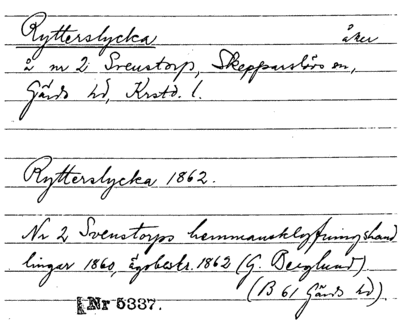 Rytterslycka åker
å nr 2 Svenstorp, Skepparslövs sn,
Gärds hd, Krstd. l.
Rytterslycka 1862.
Nr 2 Svenstorps hemmansklyfningshand
lingar 1860, ägobeskr. 1862 (G. Berglund)
(B 61 Gärds hd).
Nr 5337.